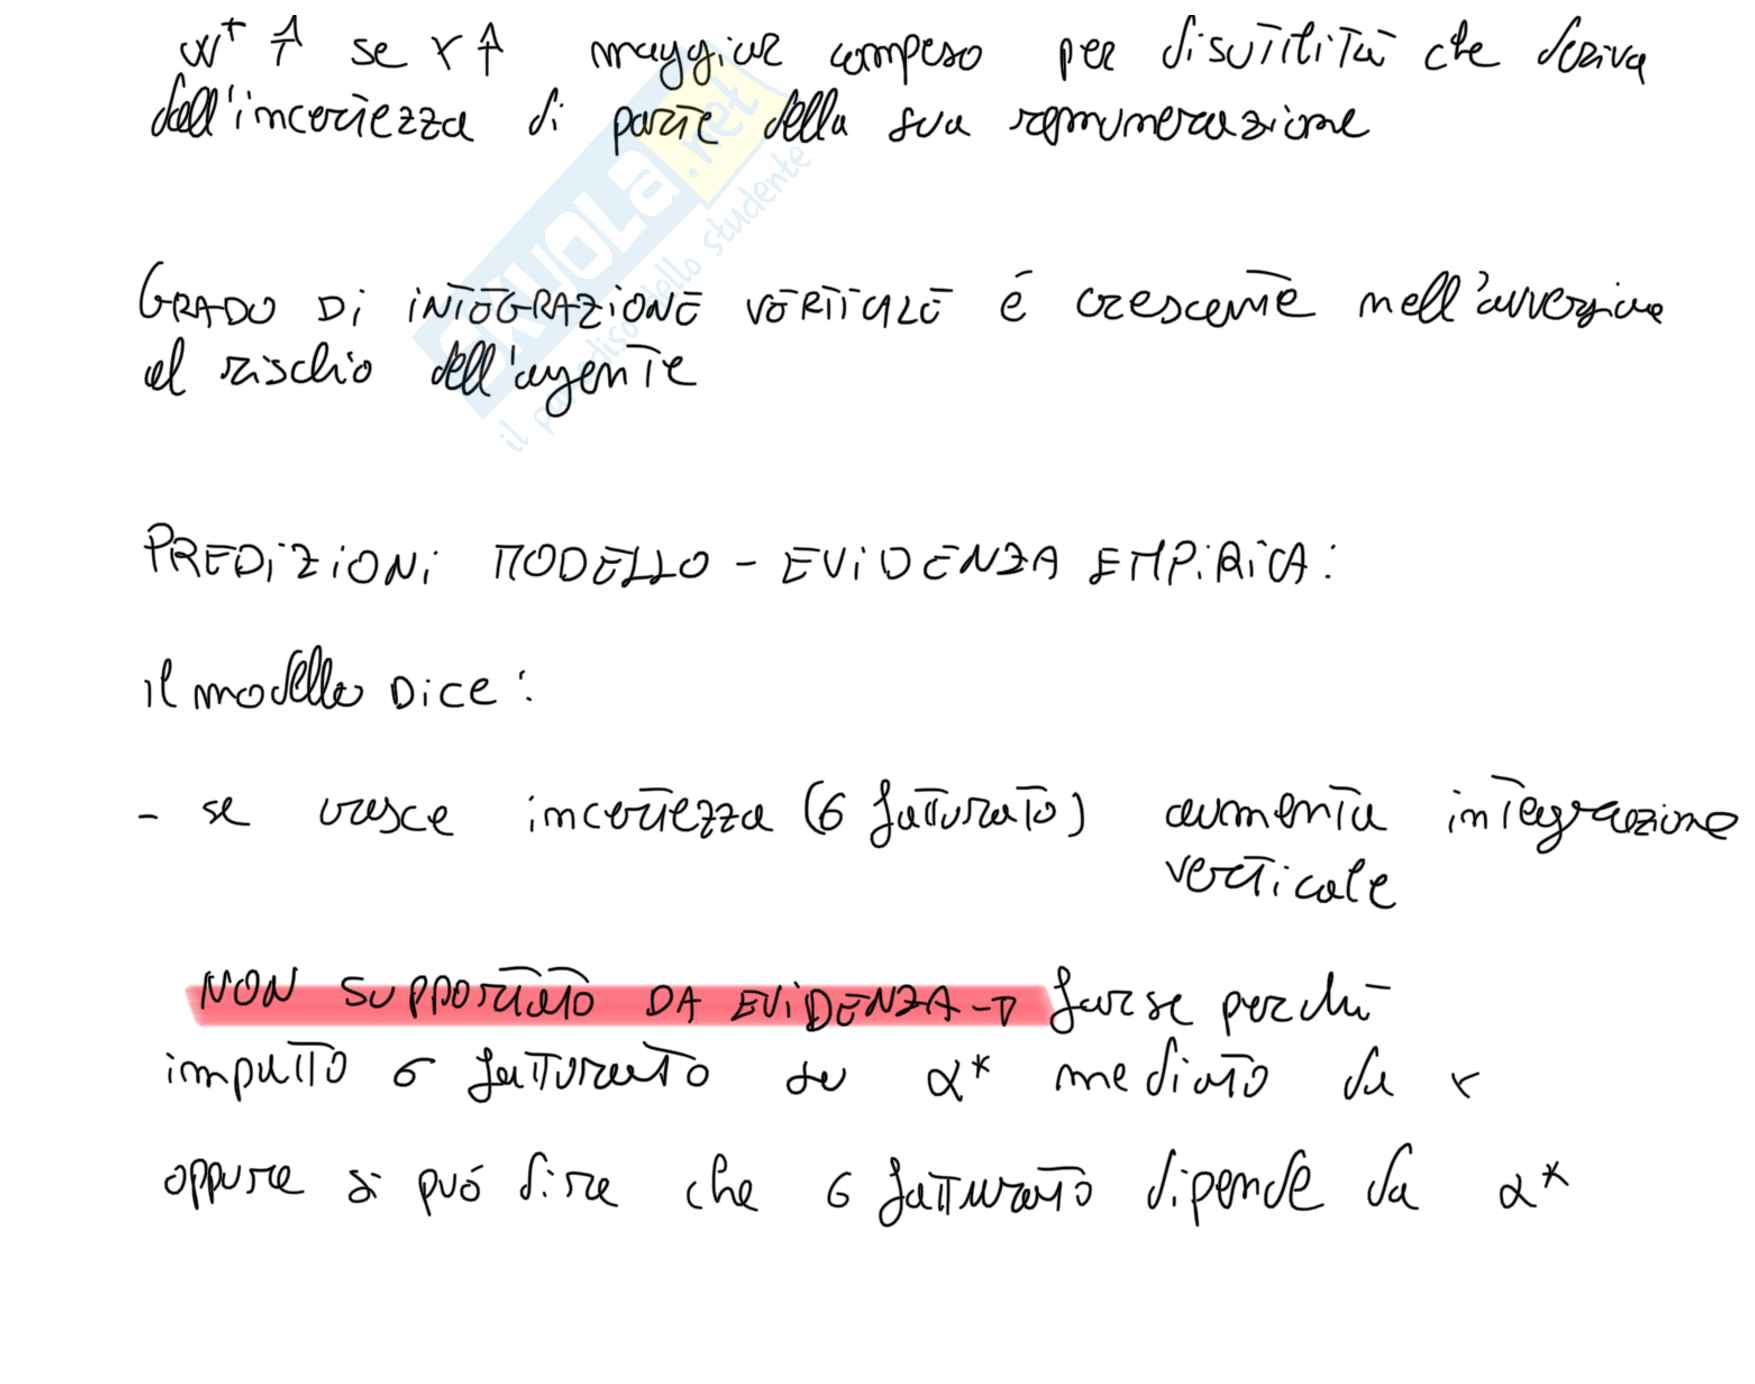 w* ↑ se r ↑ maggior compenso per disutilità che deriva
dall'incertezza di parte della sua remunerazione
GRADO Di iNTEGRAZiONE VERTiCALE é crescente nell'avversione
al rischio dell'agente
PREDiZiONi MODELLO - EViDENZA EMPiRiCA:
il modello Dice:
- se cresce incertezza (σ fatturato) aumenta integrazione
verticale
NON SUPPORTATO DA EViDENZA → forse perchè
impatto σ fatturato su α* mediato da r
oppure si può dire che σ fatturato dipende da α*
SKUOLa.net
il paradiso dello studente